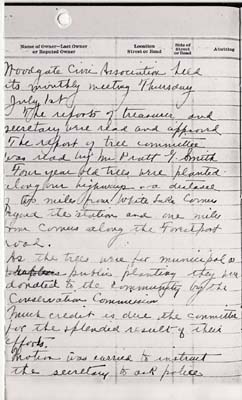 Name of Owner—Last Owner or Reputed Owner
Location Street or Road
Side of Street or Road
Abutting
Woodgate Civic Association held
its monthly meeting Thursday
July 1st
The reports of treasurer and
secretary were read and approved
The report of tree committee
was read by Mr Pratt Smith
Four year old trees were planted
along our highways a distance
miles from White Lake Corners
the station and one mile
from Corners along the Forestport
road.
As the trees were for municipal or
public planting they were
donated to the community by the
Conservation Commission
Much credit is due the committee
for the splendid result of their
efforts.
Motion was carried to instruct
the secretary to ask police